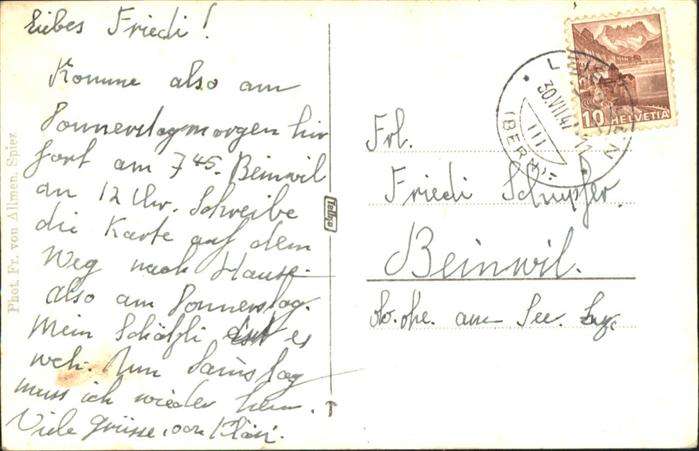 Liebes Friedi!
Komme also am
Donnerstagmorgen hir
fort am 7 45. Beinwil
an 12 Uhr. Schreibe
die Karte auf dem
Weg nach Hause.
also am Donnerstag.
Mein Schätzli es
weh. Nun Samstag
muss ich wieder heim.
Viele grüsse, von Kläri.
Phot. Fr. von Allmen, Spiez
Tellko
10 HELVETIA
30.VII.47
III
Frl.
Friedi Schupfer.
Beinwil.
am See.